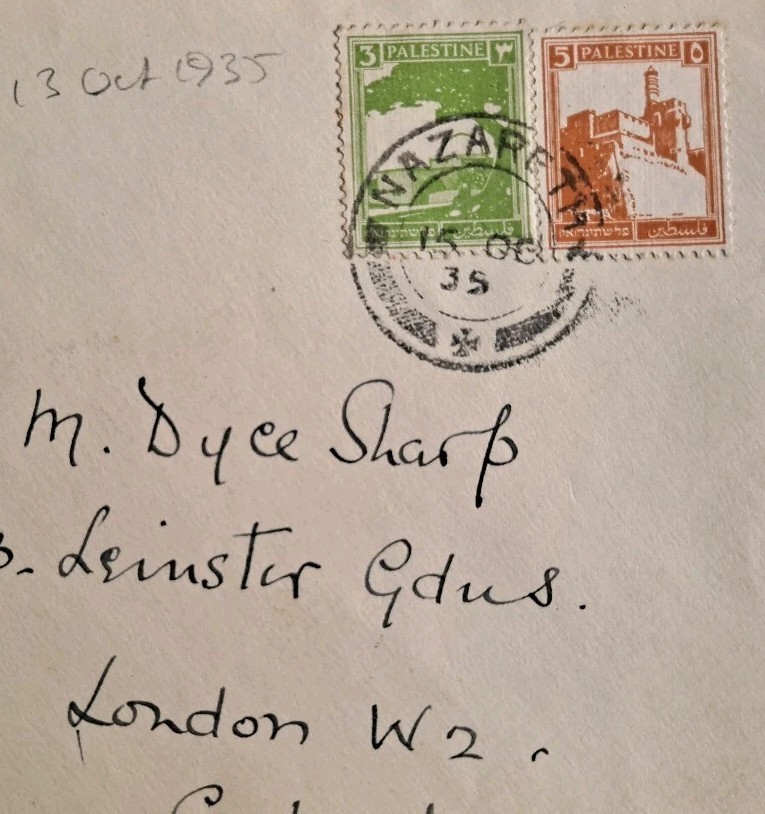 13 Oct 1935
3 PALESTINE ٣
فلسطين פלשתינה א״י
5 PALESTINE ٥
فلسطين פלשתינה א״י
NAZARETH
15 OC
35
M. Dyce Sharp
Leinster Gdns.
London W2.